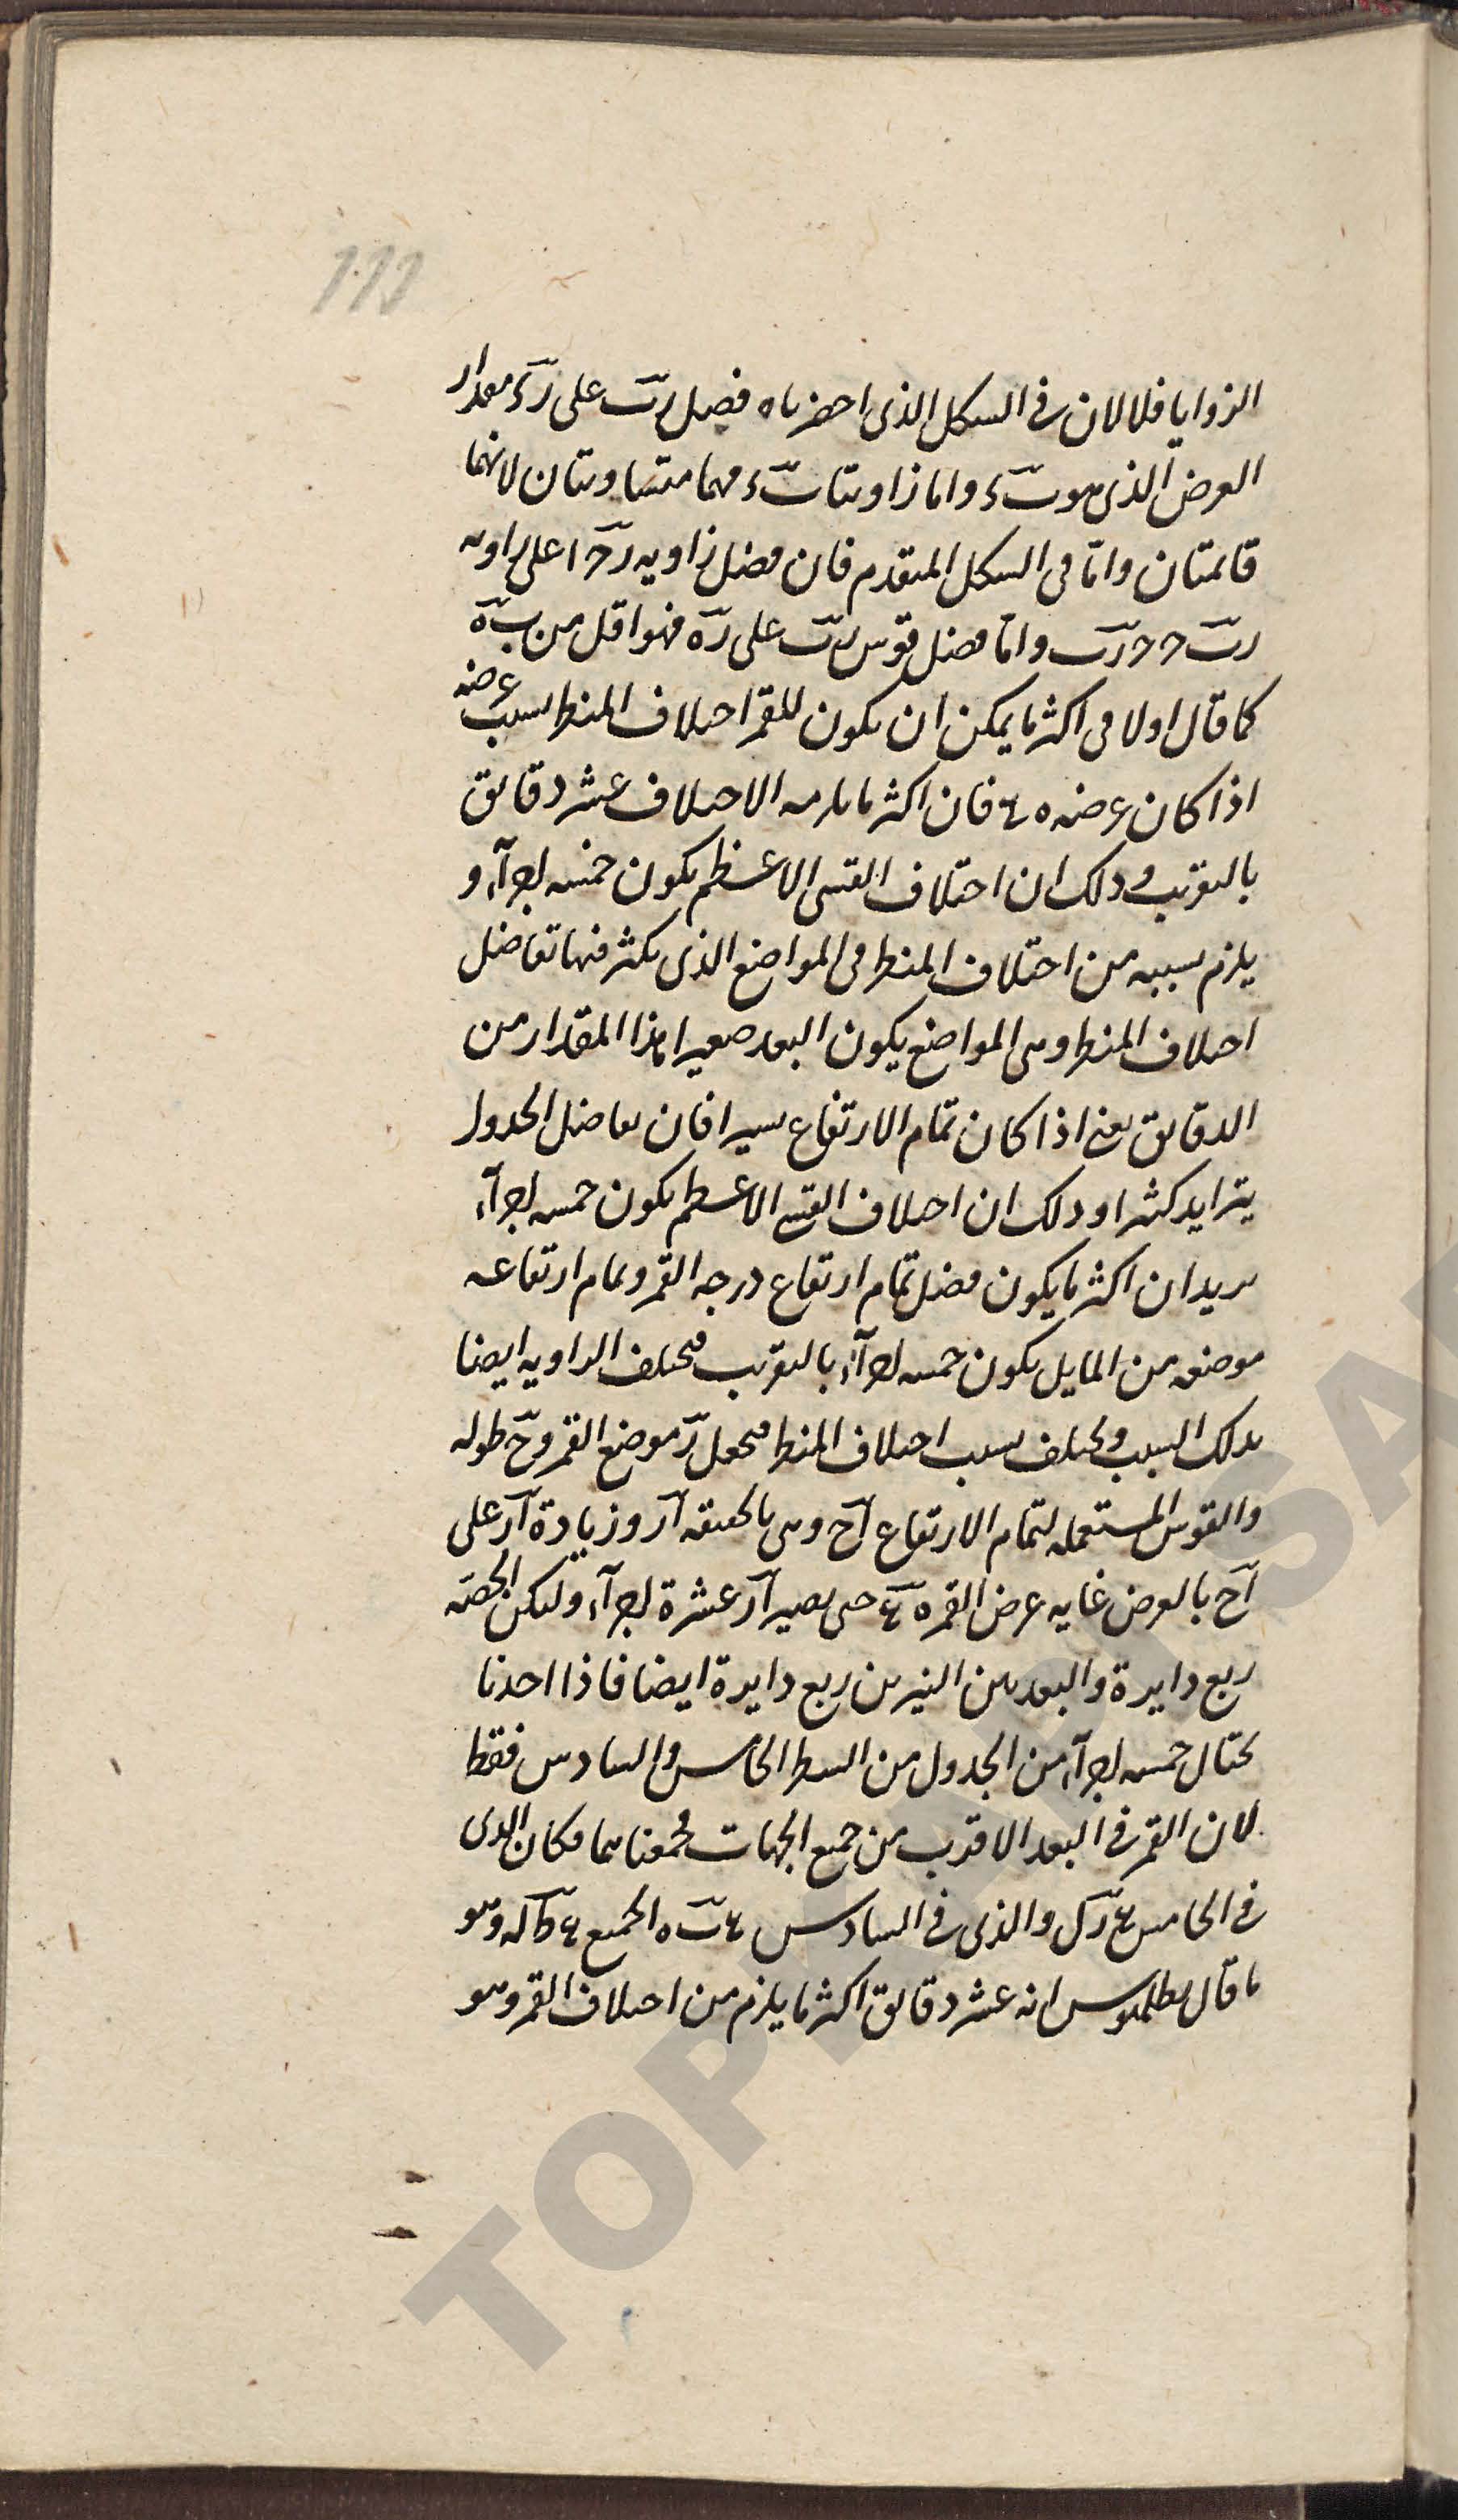 الزوايا فلا لان في الشكل الذي احضرناه فضل رب على رء مقدار
العرض الذي هو ب ء واما زاويتا ب ء فهما متساويتان لانهما
قائمتان واما في الشكل المتقدم فان فضل زاوية رح ا على زاوية
واما فضل قوس رب على ره فهو اقل من ب ه
كما قال اولا في اكثر ما يمكن ان يكون للقمر اختلاف المنظر بسبب عرضه
اذا كان عرضه ه فان اكثر ما يلزمه الاختلاف عشر دقائق
بالتقريب وذلك ان اختلاف القسي الاعظم يكون خمسة اجزآء و
يلزم بسببه من اختلاف المنظر في المواضع الذي يكثر فيها تفاضل
اختلاف المنظر وهي المواضع يكون البعد صغيرا هذا المقدار من
الدقائق يعني اذا كان تمام الارتفاع يسيرا فان تفاضل الجدول
يتزايد كثيرا وذلك ان اختلاف القسي الاعظم يكون خمسة اجزآء
يريد ان اكثر ما يكون فضل تمام ارتفاع درجة القمر وتمام ارتفاعه
موضعه من المايل يكون خمسة اجزآء بالتقريب فتختلف الزاوية ايضا
بذلك السبب ويختلف بسبب اختلاف المنظر فنجعل ر موضع القمر وح طوله
والقوس المستعملة لتمام الارتفاع اح وهي بالحقيقة ار وزيادة ار على
اح بالعرض غاية عرض القمر ه حتى يصير ار عشرة اجزآء ولتكن الحصة
ربع دايرة والبعد بين النيرين ربع دايرة ايضا فاذا اخذنا
بحيال خمسة اجزآء من الجدول من السطر الخامس والسادس فقط
لان القمر في البعد الاقرب من جميع الجهات فجمعناهما فكان الذي
في الخامس والذي في السادس الجميع وهو
ما قال بطلميوس انه عشر دقائق اكثر ما يلزم من اختلاف القمر وهو